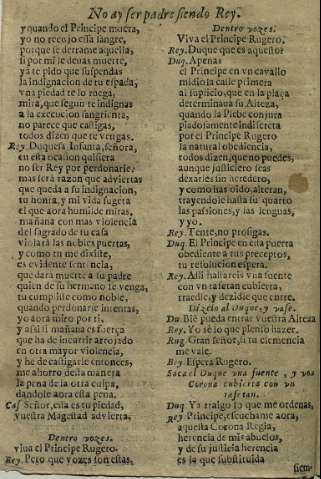 No ay ser padre siendo Rey.
y quando el Principe muera,
yo no recojo essa sangre,
porque se derrame aquella,
si por mi le deuas muerte,
ya te pido que suspendas
la indignacion de tu espada,
vna piedad te lo ruega,
mira, que segun te indignas
a la execucion sangrienta,
no parece que castigas,
todos dizen que te vengas.
Rey. Duquesa Infanta, señora,
en esta ocasion quisiera
no ser Rey por perdonarle;
mas será razon que aduiertas
que queda a su indignacion,
tu honra, y mi vida sugeta
el que aora humilde miras,
mañana con mas violencia
del sagrado de tu casa
violará las nobles puertas,
y como tu me dixiste,
es euidente sentencia,
que dará muerte a su padre
quien de su hermano le venga,
tu cumpliste como noble,
quando perdonarle intentas,
yo aora miro por ti,
y assi si mañana es fuerça
que ha de incurrir arrojado
en otra mayor violencia,
y he de castigarle entonces,
me ahorro desta manera
la pena de la otra culpa,
dandole aora esta pena.
Cas. Señor, esta es tu piedad,
vuestra Magestad aduierta.
Dentro vozes.
viua el Principe Rugero.
Rey. Pero que vozes son estas,
Dentro vozes.
Viua el Principe Rugero.
Rey. Duque que es aquesto?
Duq. Apenas
el Principe en vn cavallo
midio la calle primera
al suplicio, que en la plaça
determinaua su Alteza,
quando la Plebe conjura
piadosamente indiscreta
por el Principe Rugero
la natural obediencia,
todos dizen, que no puedes,
aunque justiciero seas
dexarles sin heredero,
y como has oido, alteran,
trayendole hasta su quarto
las passiones, y las lenguas,
y yo.
Rey. Tente, no prosigas.
Duq. El Principe en esta puerta
obediente a tus preceptos,
tu resolucion espera.
Rey. Assi hallareis vna fuente
con vn tafetan cubierta,
traedle, y dezidle que entre.
Dizelo al Duque, y vase.
Du. Bie puede entrar vuestra Alteza
Rey. Yo se lo que pienso hazer.
Rug. Gran señor, si tu clemencia
me vale.
Rey. Espera Rugero.
Saca el Duque vna fuente, y vna
Corona cubierta con vn
tafetan.
Duq. Ya traigo lo que me ordenas,
Rey Principe, escuchame aora,
aquesta Corona Regia,
herencia de mis abuelos,
y de su justicia herencia
es la que substituida
siem-